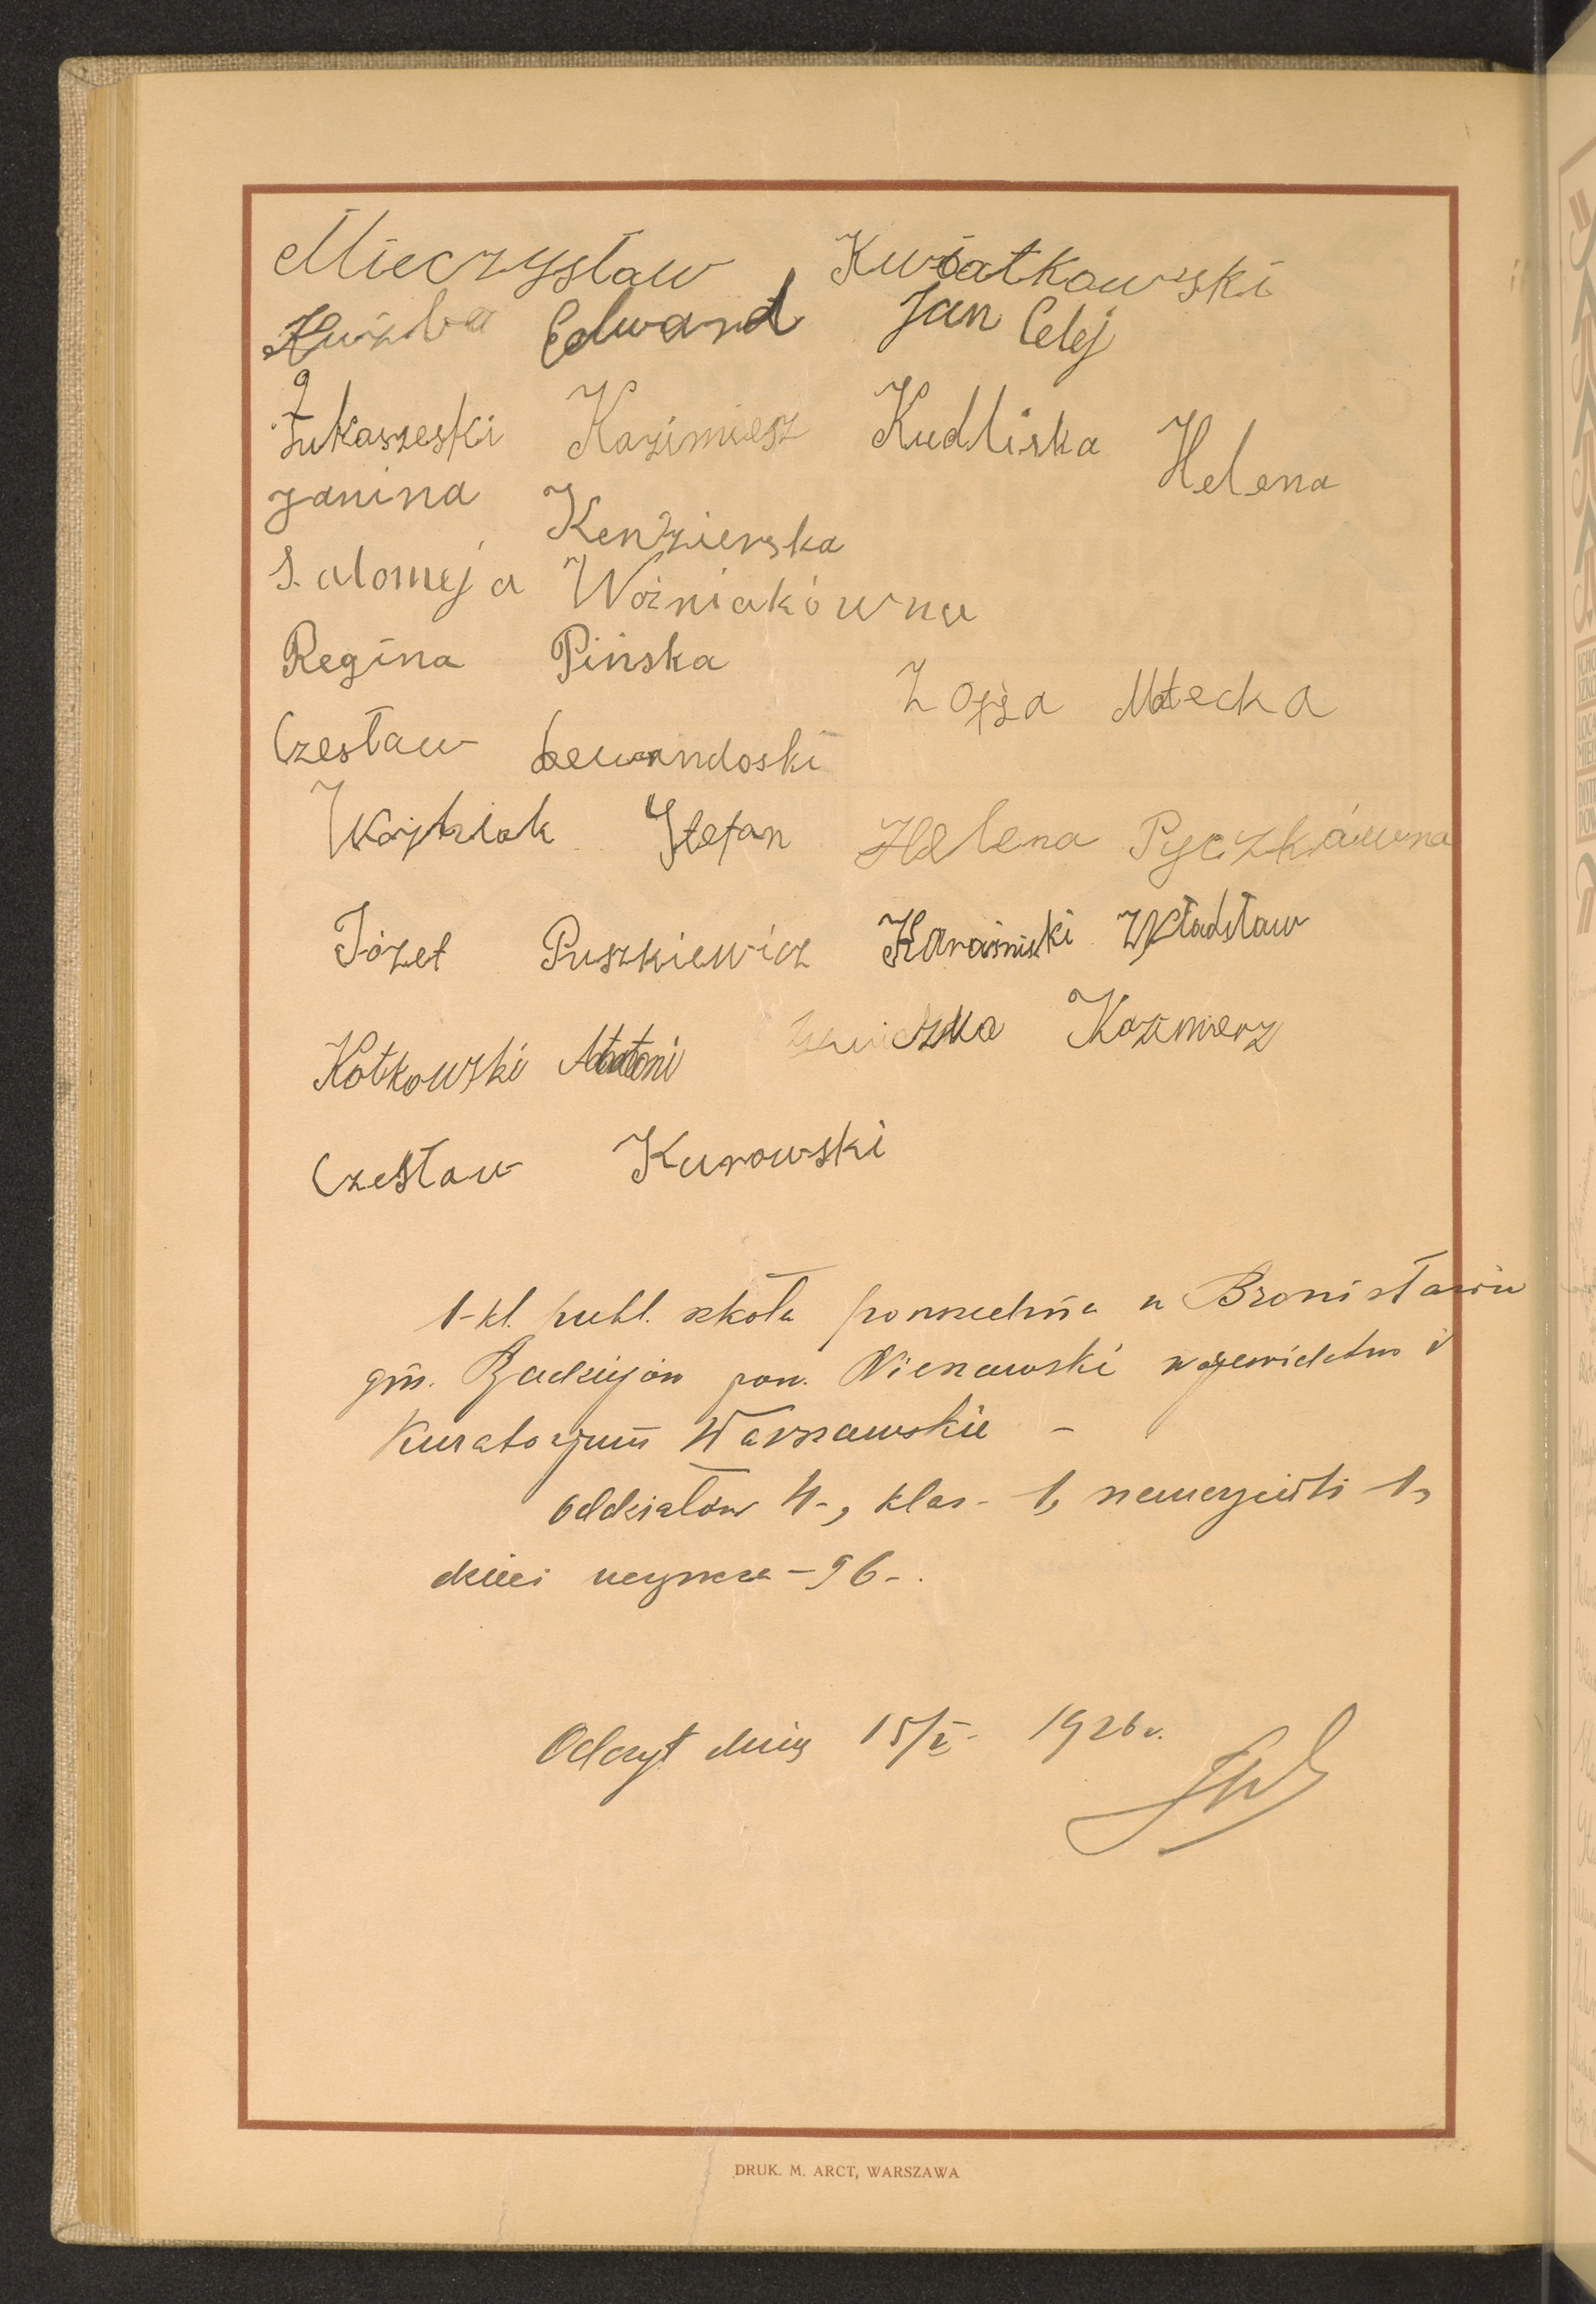 Mieczysław Kwiatkowski
Edward Jan Celej
Łukaszeski Kazimiesz Kudliska Helena
Janina Kendzierska
Salomeja Woźniakówna
Regina Pińska
Zofja Małecka
Czesław Lewandoski
Wojtziak Stefan Helena Pyczkówna
Józef Puszkiewicz Karaśniski Władsław
Kotkowski Antoni Kazimierz
Czesław Kurowski
1-kl. publ. szkoła powszechna w Bronisławiu
gm. Radziejów pow. Nieszawski województwo i
Kuratorjum Warszawskie -
oddziałów 4-, klas - 1, nauczycieli 1,
dzieci uczęszcza - 96 -.
Odczyt dnia 15/V - 1926 r.
DRUK. M. ARCT, WARSZAWA